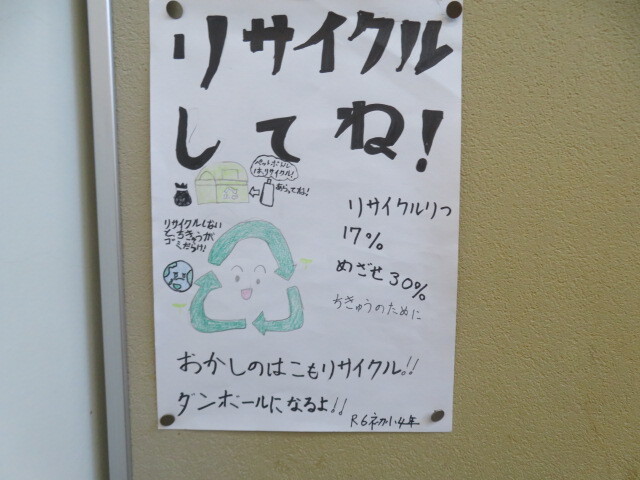 リサイクル
してね!
ペットボトル
は、リサイクル!
あらってね!
リサイクルしない
とちきゅうが
ゴミだらけ!
リサイクルりつ
17%
めざせ30%
ちきゅうのために
おかしのはこもリサイクル!!
ダンボールになるよ!!
R6 小4年